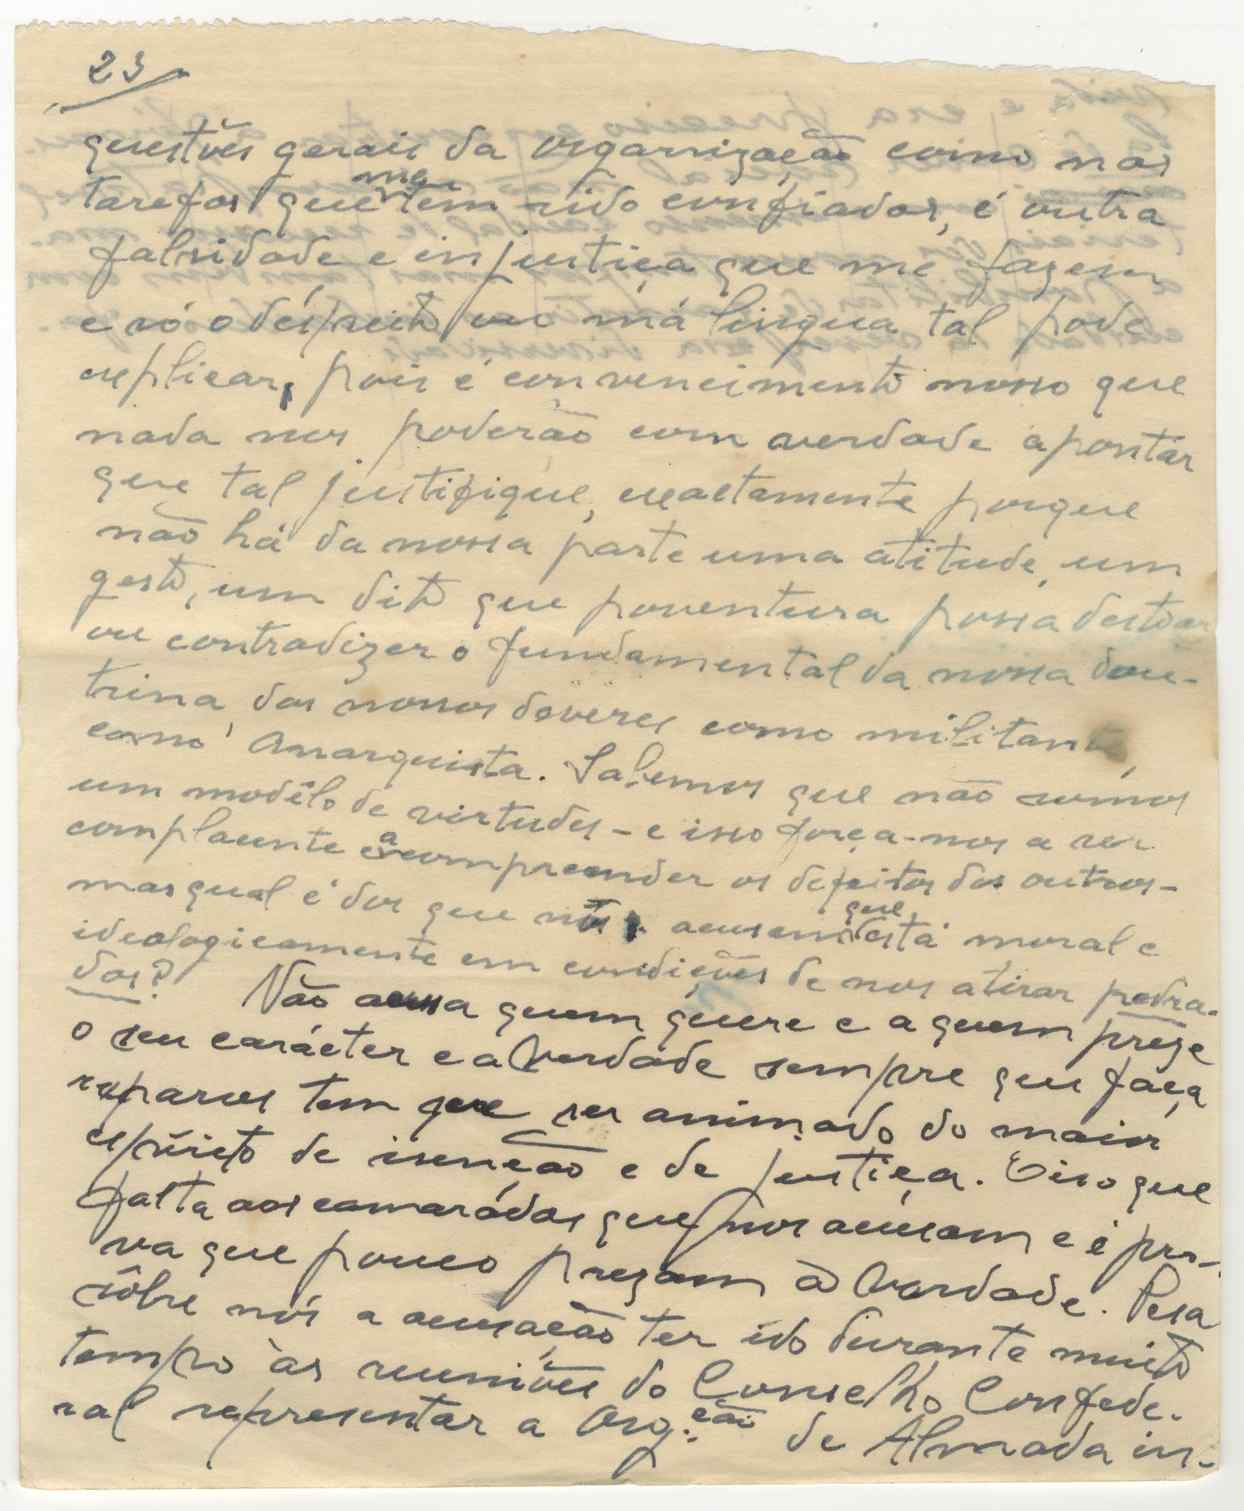 23
questões gerais da organização como nas
tarefas que me tem sido confiadas, é outra
falsidade e injustiça que me fazem
e só o despeito ou má lingua tal pode
explicar, pois é convencimento nosso que
nada nos poderão com verdade apontar
que tal justifique, exactamente porque
não há da nossa parte uma atitude, um
gesto, um dito que porventura possa destoar
ou contradizer o fundamental da nossa dou-
trina, dos nossos deveres como militante,
como Anarquista. Sabemos que não somos
um modêlo de virtudes - e isso força-nos a ser
complacente e a compreender os defeitos dos outros -
mas qual é dos que nos acusam que está moral e
ideologicamente em condições de nos atirar pedra-
das? Não acusa quem quere e a quem preze
o seu carácter e a Verdade sempre que faça
reparos tem que ser animado do maior
espírito de isenção e de justiça. E isso que
falta aos camarádas que nos acusam e é pro-
va que pouco prezam a Verdade. Pesa
sôbre nós a acusação ter ido durante muito
tempo às reuniões do Conselho Confede-
ral representar a Org.ção de Almada in-